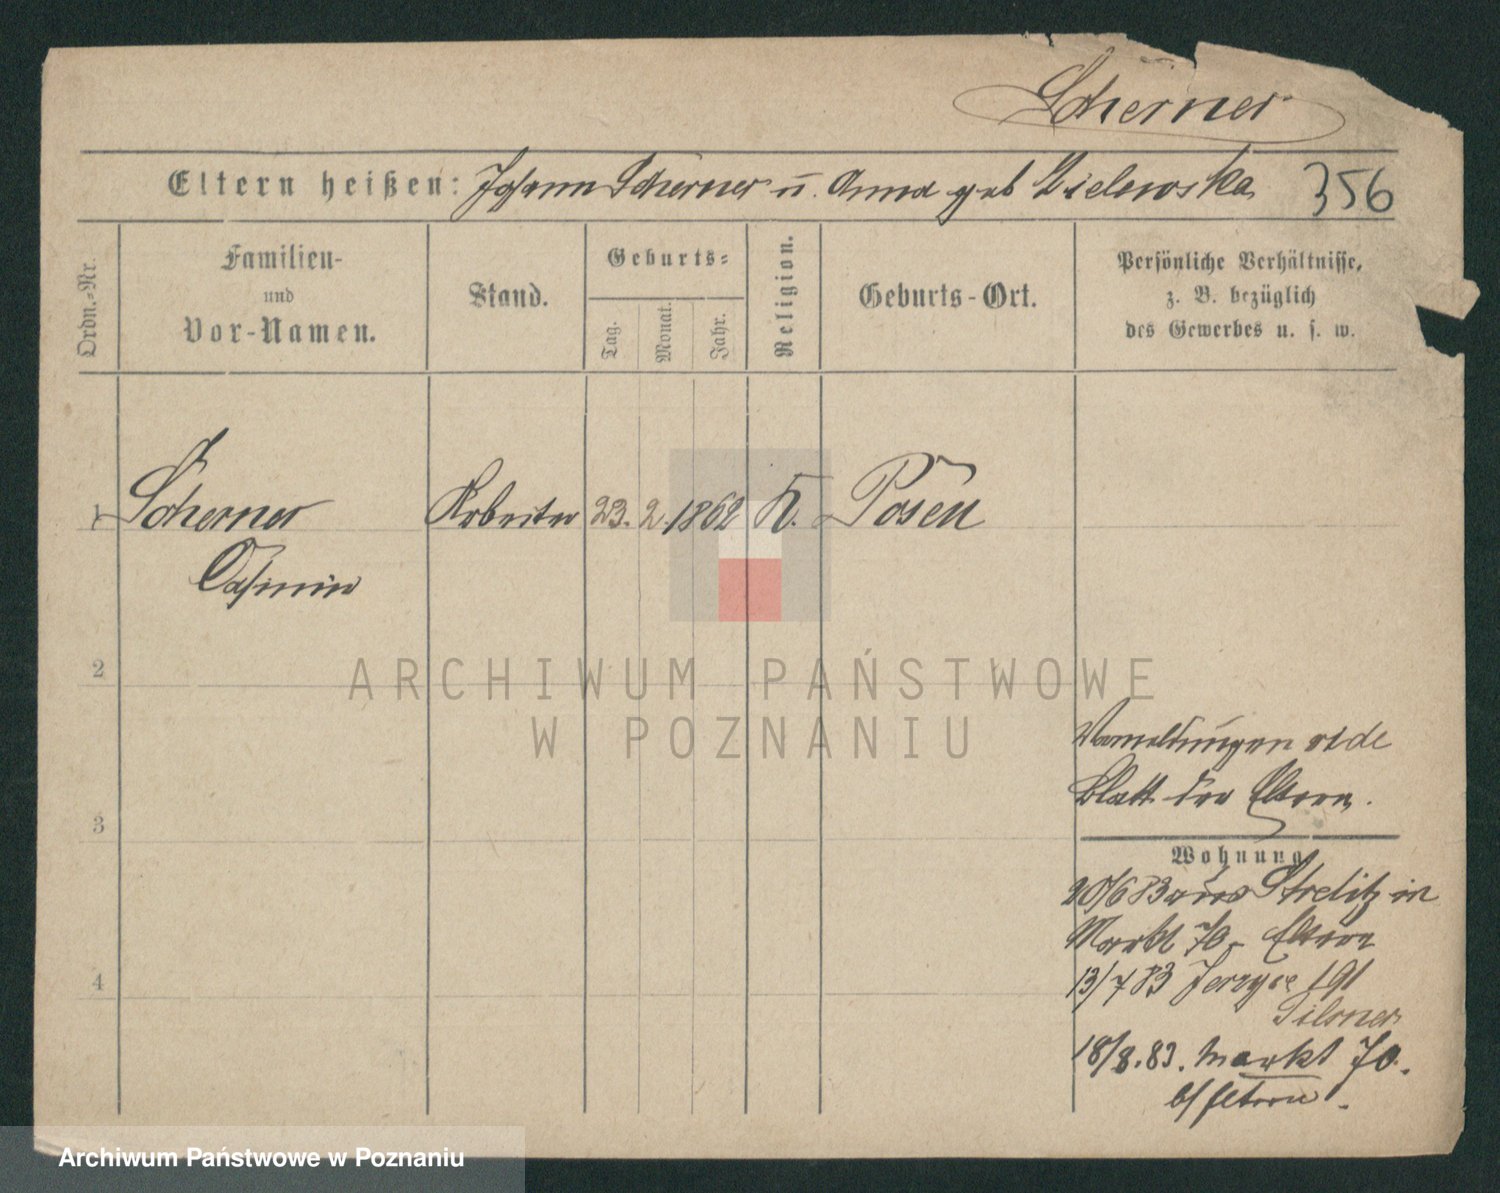 Scherner
Eltern heißen: Johann Scherner u. Anna geb Zielewska
356
Ordn.-Nr.
Familien-
und
Vor-Namen.
Stand.
Geburts-
Tag.
Monat.
Jahr.
Religion.
Geburts-Ort.
Persönliche Verhältnisse,
z. B. bezüglich
des Gewerbes u. s. w.
1 Scherner Arbeiter 23. 2. 1862 K. Posen
Casimir
2
3
4
Vermeldungen side
Blatt der Eltern.
Wohnung
20/6 83 aus Strelitz in
Markt 70 Eltern
13/7 83 Jerzyce 191
18/8. 83. Markt 70.
b/ Eltern.
ARCHIWUM PAŃSTWOWE
W POZNANIU
Archiwum Państwowe w Poznaniu